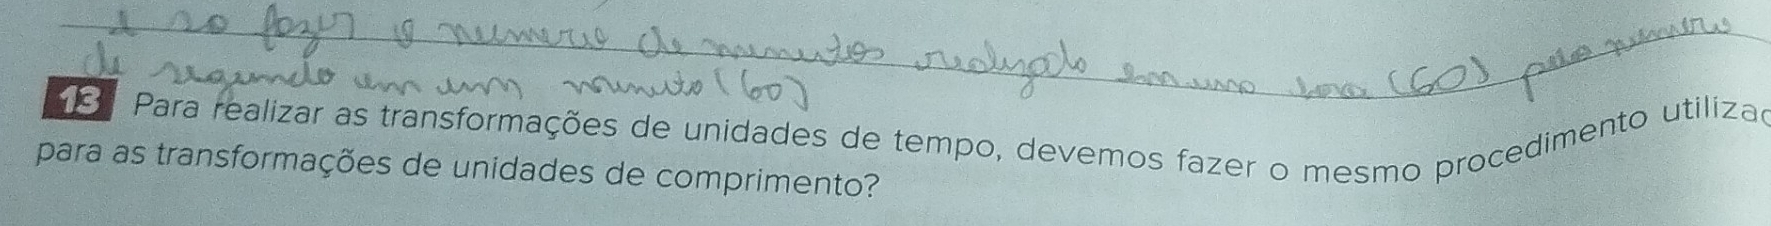 é so fazer o numero de minutos realizado em uma hora (60) pelo numero
de segundo em um minuto (60)
13 Para realizar as transformações de unidades de tempo, devemos fazer o mesmo procedimento utilizad
para as transformações de unidades de comprimento?